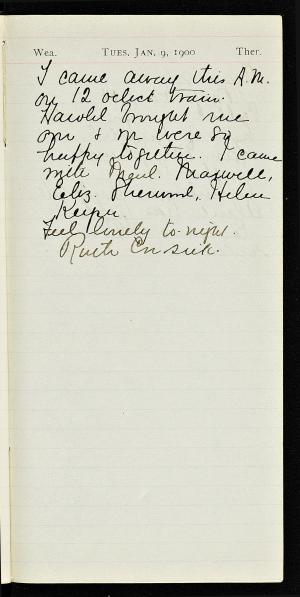 Wea. TUES. JAN. 9, 1900 Ther.
I came away this A.M.
on 12 oclock train.
Harold brought me
own & we were so
happy together. I came
with Marg. Maxwell,
Eliz. Sherwood, Helen
Feel lonely to-night.
Ruth